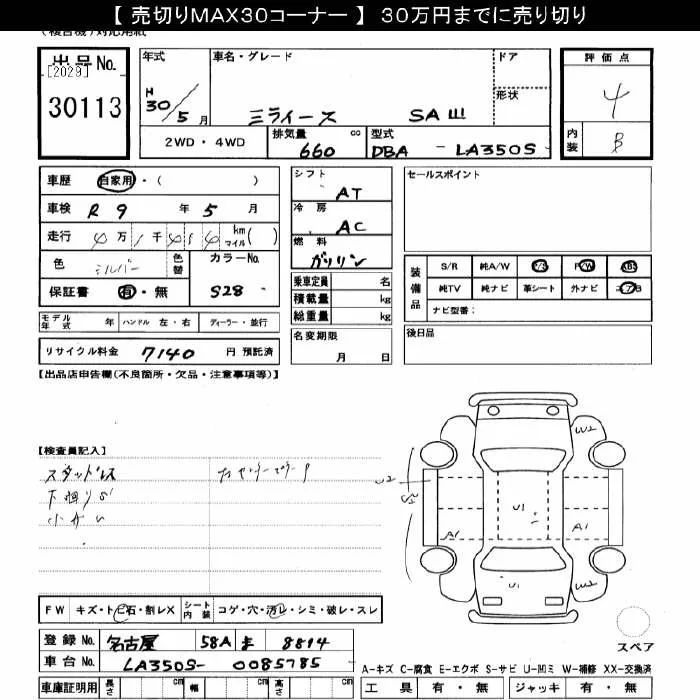 【 売切りMAX30コーナー 】 30万円までに売り切り
出品No.
[2029]
30113
年式
H30/5月
車名・グレード
ミライース SAⅢ
ドア
形状
2WD・4WD
排気量 660 cc
型式 DBA - LA350S
評価点
4
内装
B
車歴 自家用・( )
車検 R 9 年 5 月
走行 万 千 km マイル( )
色 シルバー 色替
カラーNo.
S28
保証書 有・無
モデル年式 年 ハンドル 左・右 ディーラー・並行
リサイクル料金 7140 円 預託済
シフト
AT
冷房
AC
燃料
ガソリン
乗車定員 名
積載量 kg
総重量 kg
名変期限
月 日
セールスポイント
装備品
S/R 純A/W P/S P/W ABS
純TV 純ナビ 革シート 外ナビ エアB
ナビ型番:
後日品
【出品店申告欄(不良箇所・欠品・注意事項等)】
【検査員記入】
スタッドレス
下廻りS
小キズ
W2
U2
S2
A1
U1
A1
U1
W2
FW キズ・トビ石・割レX シート内装 コゲ・穴・汚レ・シミ・破レ・スレ
登録No. 名古屋 58A ま 8814
車台No. LA350S- 0085785
車庫証明用 長さ cm 幅 cm 高さ cm
スペア
A-キズ C-腐食 E-エクボ S-サビ U-凹ミ W-補修 XX-交換済
工具 有・無 ジャッキ 有・無